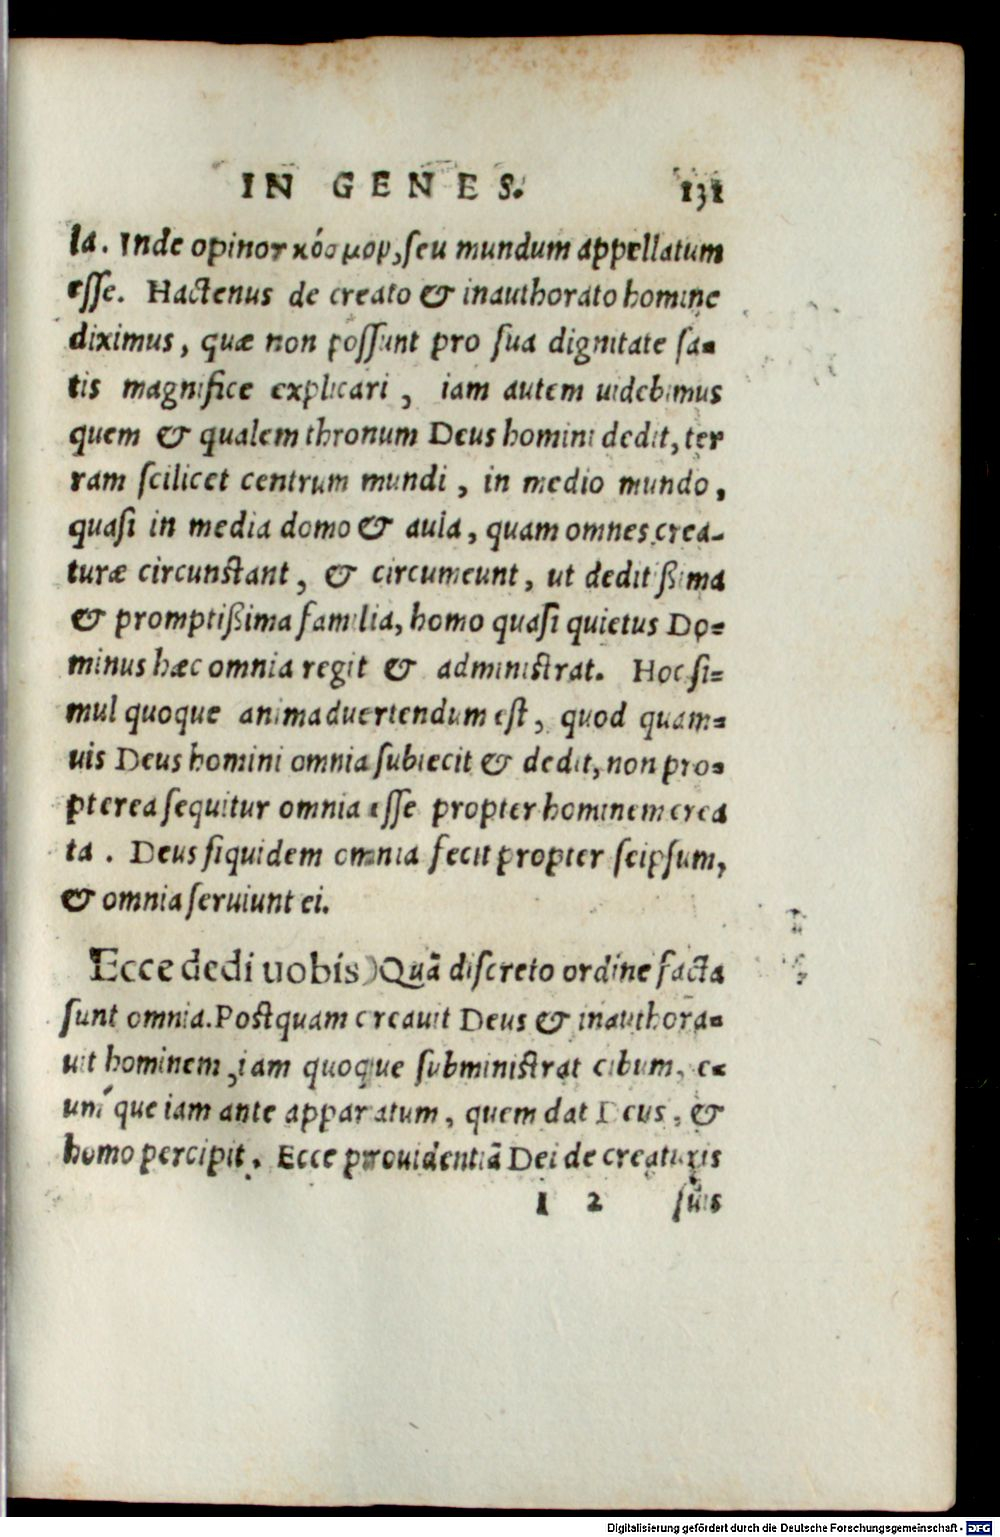 IN GENES. 131
la. Inde opinor κόσμορ, seu mundum appellatum
esse. Hactenus de creato & inauthorato homine
diximus, quæ non possunt pro sua dignitate sa-
tis magnifice explicari, iam autem uidebimus
quem & qualem thronum Deus homini dedit, ter
ram scilicet centrum mundi, in medio mundo,
quasi in media domo & aula, quam omnes crea-
turæ circunstant, & circumeunt, ut deditißima
& promptißima familia, homo quasi quietus Do-
minus hæc omnia regit & administrat. Hoc si-
mul quoque animaduertendum est, quod quam-
uis Deus homini omnia subiecit & dedit, non pro-
pterea sequitur omnia esse propter hominem crea
ta. Deus siquidem omnia fecit propter seipsum,
& omnia seruiunt ei.
Ecce dedi uobis) Quã discreto ordine facta
sunt omnia. Postquam creauit Deus & inauthora-
uit hominem, iam quoque subministrat cibum, e-
um´que iam ante apparatum, quem dat Deus, &
homo percipit. Ecce prouidentiã Dei de creaturis
I 2 suis
Digitalisierung gefördert durch die Deutsche Forschungsgemeinschaft - DFG